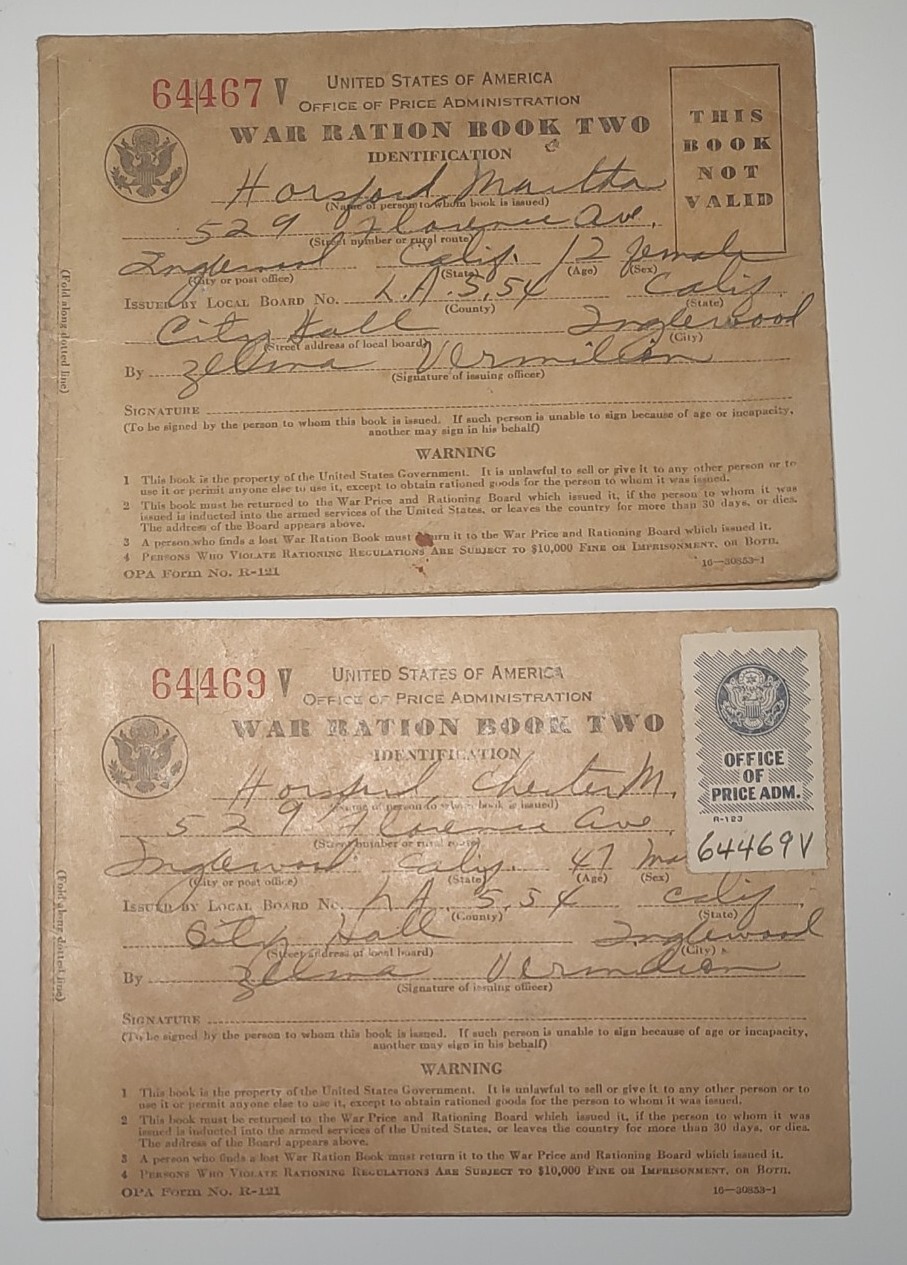 64467 V
UNITED STATES OF AMERICA
OFFICE OF PRICE ADMINISTRATION
WAR RATION BOOK TWO
IDENTIFICATION
THIS
BOOK
NOT
VALID
Horsford, Martha
(Name of person to whom book is issued)
529 Florence Ave,
(Street number or rural route)
Inglewood Calif. 12 female
(City or post office) (State) (Age) (Sex)
ISSUED BY LOCAL BOARD NO. L.A. 5,54 Calif.
(County) (State)
City Hall Inglewood
(Street address of local board) (City)
By Zelma Vermilion
(Signature of issuing officer)
(Fold along dotted line)
SIGNATURE
(To be signed by the person to whom this book is issued. If such person is unable to sign because of age or incapacity,
another may sign in his behalf)
WARNING
1 This book is the property of the United States Government. It is unlawful to sell or give it to any other person or to
use it or permit anyone else to use it, except to obtain rationed goods for the person to whom it was issued.
2 This book must be returned to the War Price and Rationing Board which issued it, if the person to whom it was
issued is inducted into the armed services of the United States, or leaves the country for more than 30 days, or dies.
The address of the Board appears above.
3 A person who finds a lost War Ration Book must return it to the War Price and Rationing Board which issued it.
4 PERSONS WHO VIOLATE RATIONING REGULATIONS ARE SUBJECT TO $10,000 FINE OR IMPRISONMENT, OR BOTH.
OPA Form No. R-121
16—30853-1
64469 V
UNITED STATES OF AMERICA
OFFICE OF PRICE ADMINISTRATION
WAR RATION BOOK TWO
IDENTIFICATION
OFFICE
OF
PRICE ADM.
R-123
64469V
Horsford, Chester M.
(Name of person to whom book is issued)
529 Florence Ave,
(Street number or rural route)
Inglewood Calif. 47 Ma
(City or post office) (State) (Age) (Sex)
ISSUED BY LOCAL BOARD NO. L.A. 5,54 Calif,
(County) (State)
City Hall Inglewood
(Street address of local board) (City)
By Zelma Vermilion
(Signature of issuing officer)
(Fold along dotted line)
SIGNATURE
(To be signed by the person to whom this book is issued. If such person is unable to sign because of age or incapacity,
another may sign in his behalf)
WARNING
1 This book is the property of the United States Government. It is unlawful to sell or give it to any other person or to
use it or permit anyone else to use it, except to obtain rationed goods for the person to whom it was issued.
2 This book must be returned to the War Price and Rationing Board which issued it, if the person to whom it was
issued is inducted into the armed services of the United States, or leaves the country for more than 30 days, or dies.
The address of the Board appears above.
3 A person who finds a lost War Ration Book must return it to the War Price and Rationing Board which issued it.
4 PERSONS WHO VIOLATE RATIONING REGULATIONS ARE SUBJECT TO $10,000 FINE OR IMPRISONMENT, OR BOTH.
OPA Form No. R-121
16—30853-1